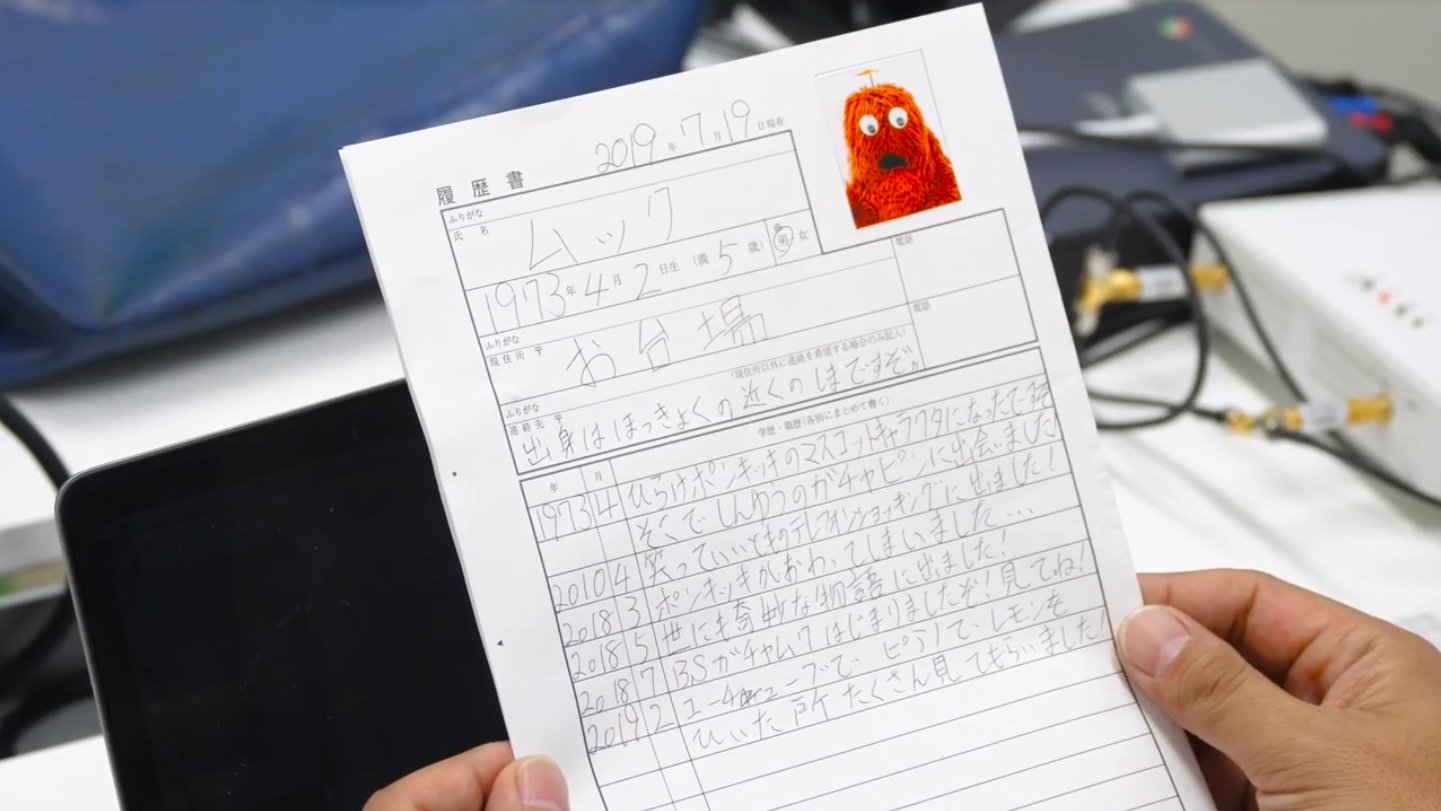 履歴書 2019年7月19日現在
ふりがな
氏名 ムック
1973年4月2日生 (満5歳) 男 女
ふりがな 電話
現住所 〒 お台場
ふりがな 電話
連絡先 〒 (現住所以外に連絡を希望する場合のみ記入)
出身はほっきょくの近くのしまですぞ。
年 月 学歴・職歴(各別にまとめて書く)
1973 4 ひらけポンキッキのマスコットキャラクタになったで
そこでしんゆうのガチャピンに出会いました
2010 4 笑っていいとものテレフォンショッキングに出ました!
2018 3 ポンキッキがおわってしまいました…
2018 5 世にも奇妙な物語に出ました!
2018 7 BSガチャムクはじまりましたぞ!見てね!
2019 2 ユーチューブで ピアノで レモンを
ひいた所 たくさん見てもらいました!